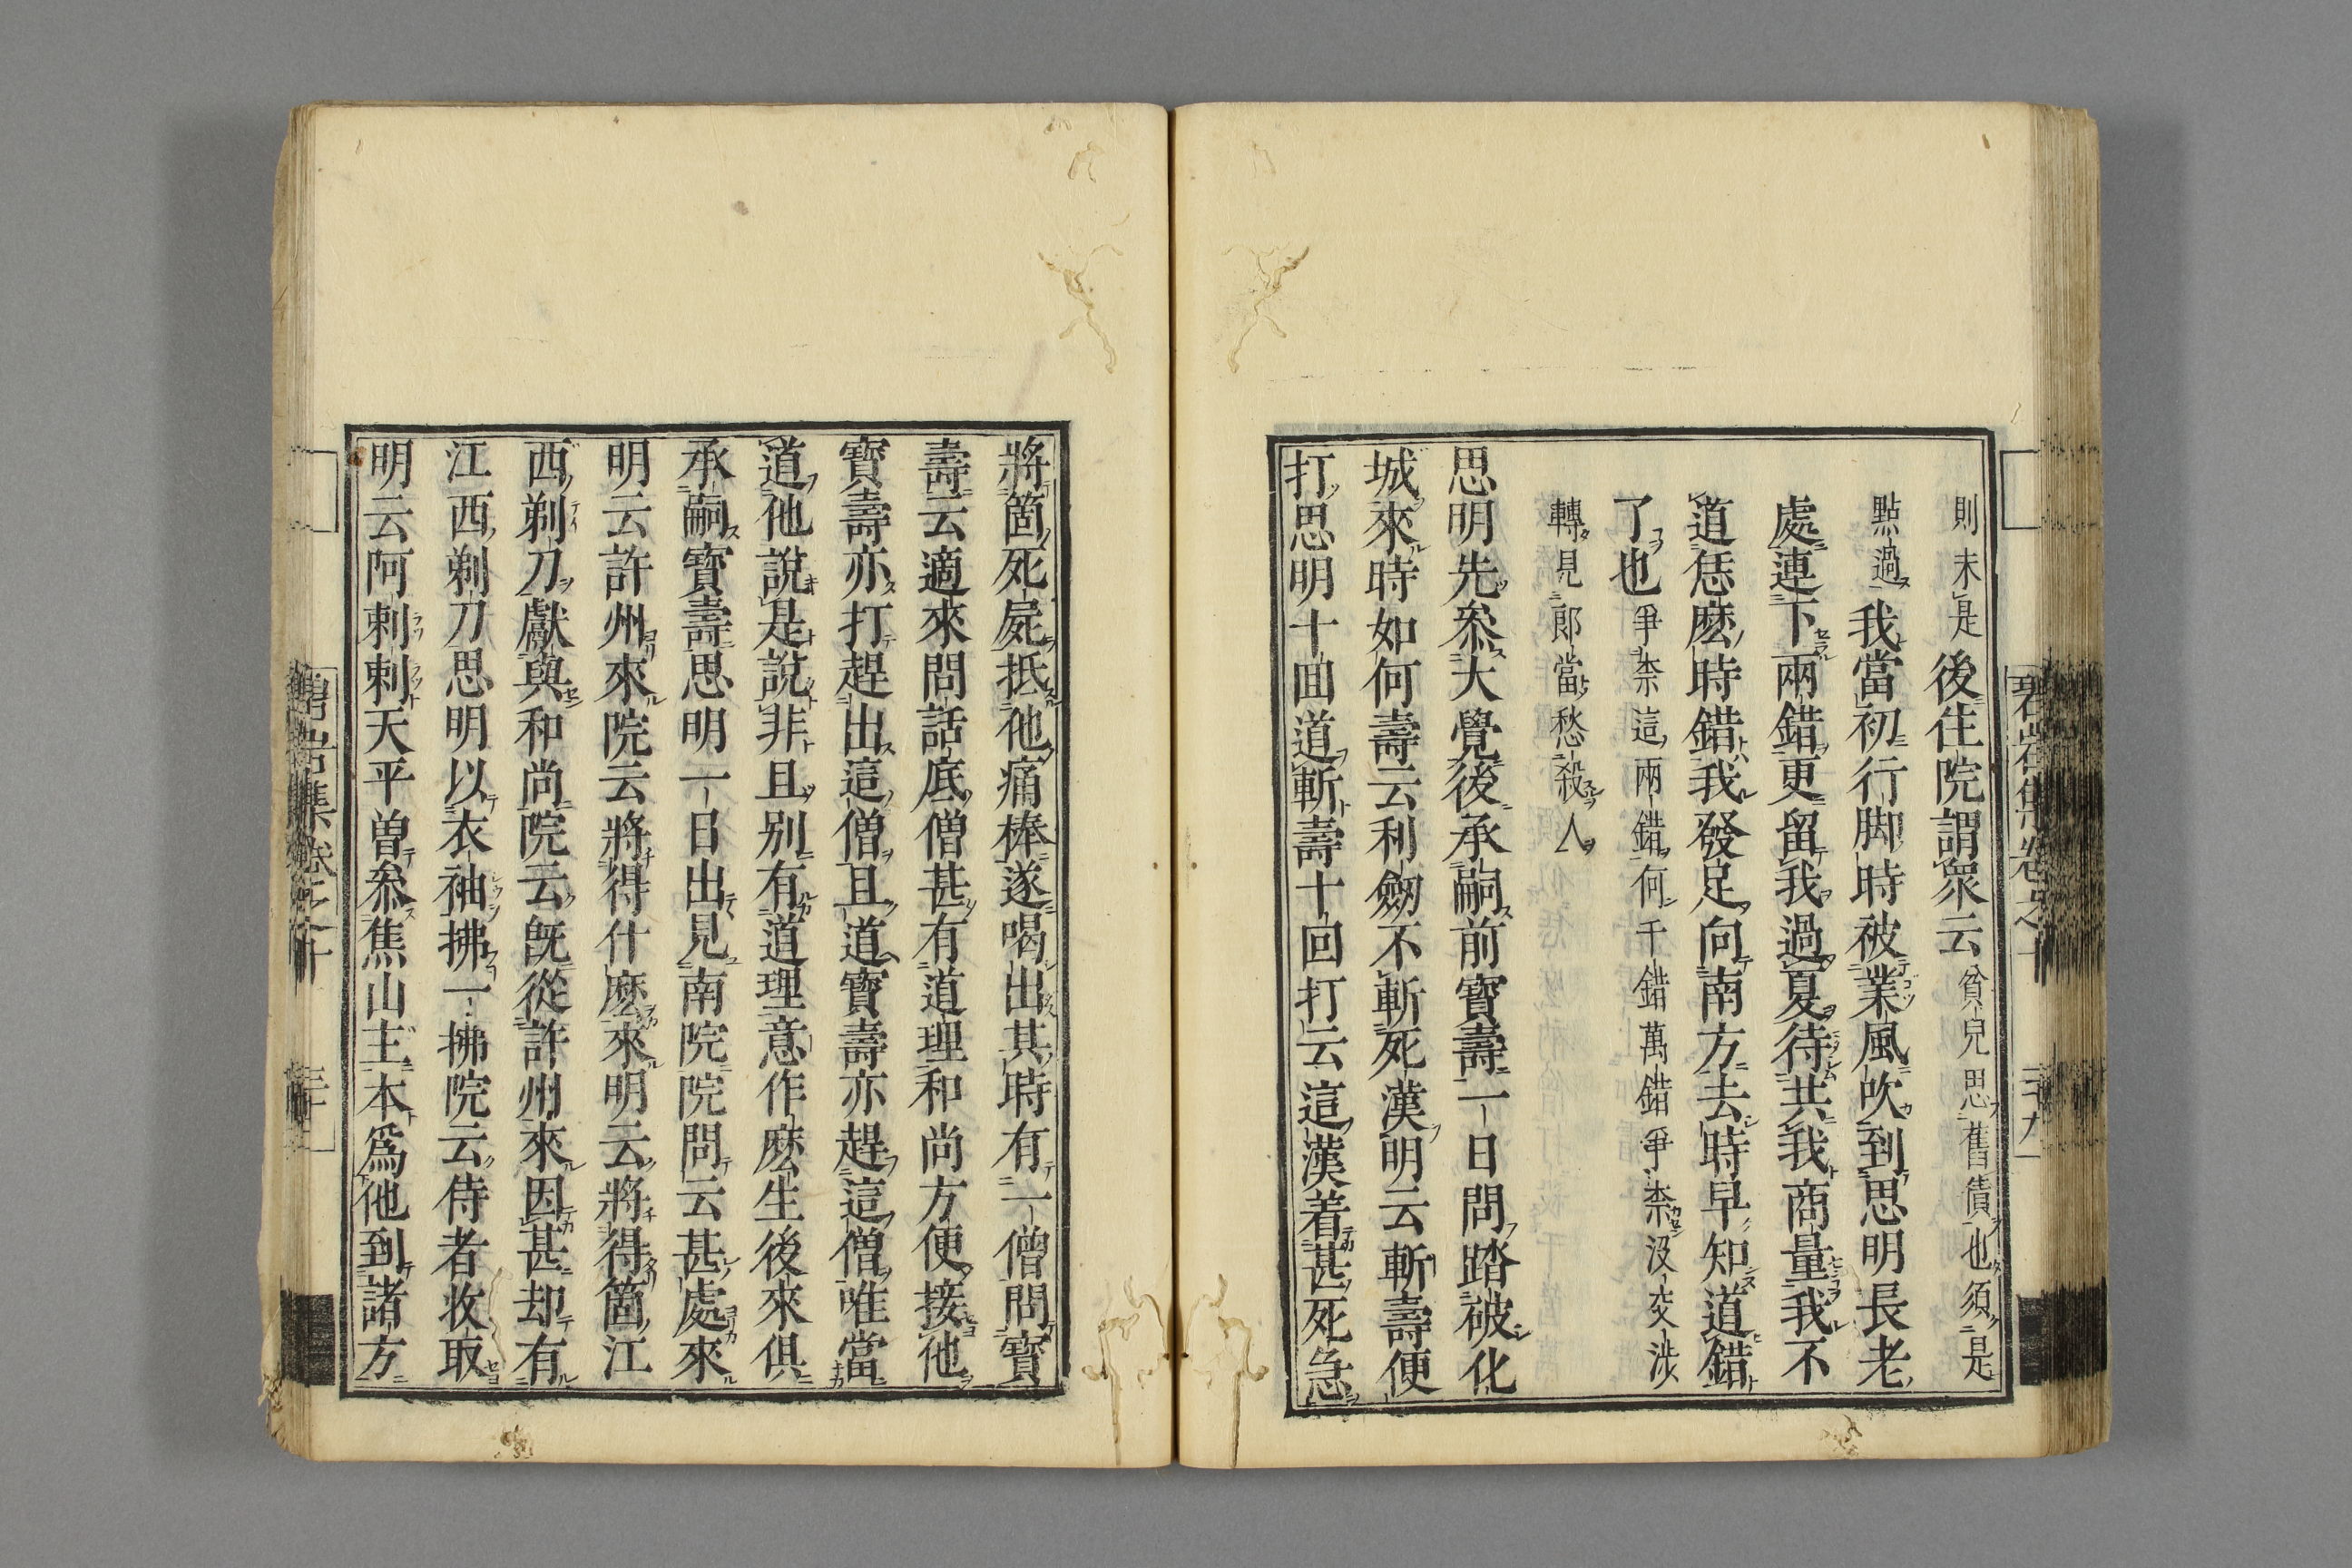 則未是後住院謂衆云貧兒思舊債也須是
點過我當初行脚時被業風吹到思明長老
處連下兩錯更留我過夏待共我商量我不
道恁麼時錯我發足向南方去時早知道錯
了也爭柰這兩錯何千錯萬錯爭柰沒交涉
轉見郎當愁殺人
思明先叅大覺後承嗣前寶壽一日問踏破化
城來時如何壽云利劒不斬死漢明云斬壽便
打思明十回道斬壽十回打云這漢着甚死急
將箇死屍抵他痛棒遂喝出其時有一僧問寶
壽云適來問話底僧甚有道理和尚方便接他
寶壽亦打趕出這僧且道寶壽亦趕這僧唯當
道他說是說非且别有道理意作麼生後來俱
承嗣寶壽思明一日出見南院院問云甚處來
明云許州來院云將得什麼來明云將得箇江
西剃刀獻與和尚院云旣從許州來因甚却有
江西剃刀思明以衣袖拂一拂院云侍者收取
明云阿剌剌天平曽叅焦山主本爲他到諸方